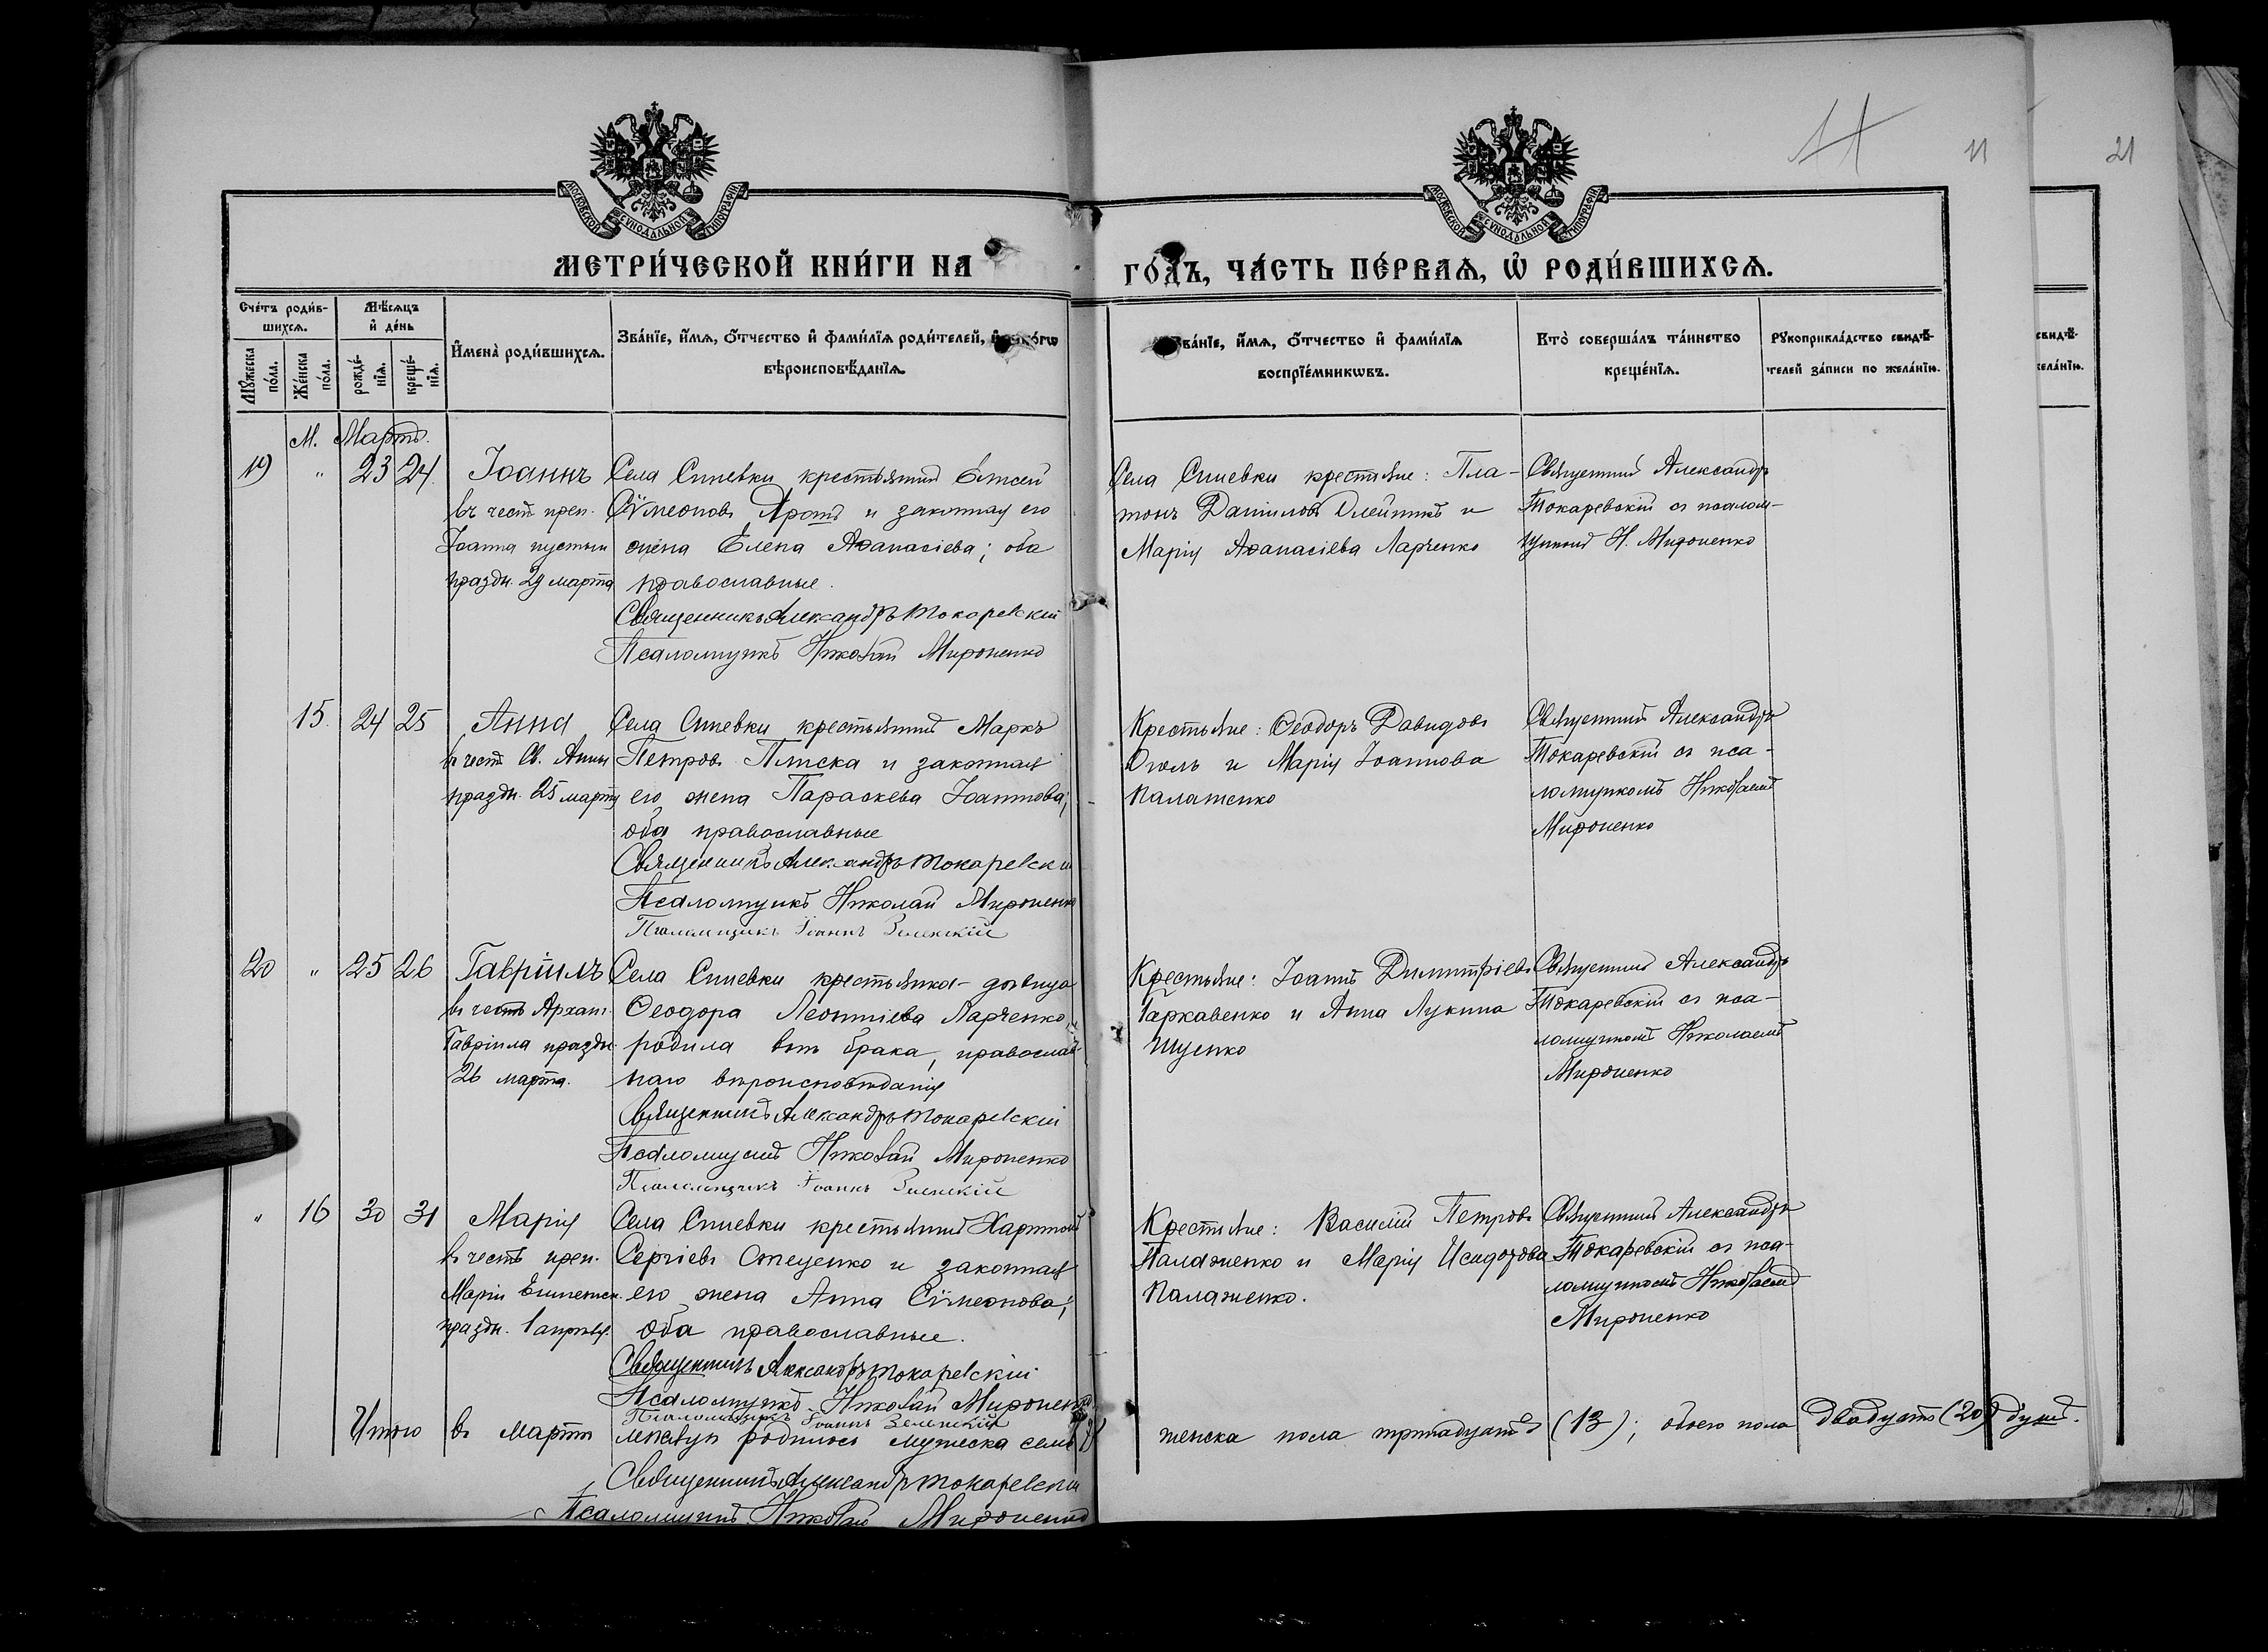 11
11
21
МОСКОВСКОЙ СѴНОДАЛЬНОЙ ТИПОГРАФІИ
МОСКОВСКОЙ СѴНОДАЛЬНОЙ ТИПОГРАФІИ
МЕТРИ́ЧЕСКОЙ КНИ́ГИ НА
ГО́ДЪ, ЧА́СТЬ ПЕ́РВАѦ, Ѡ҆ РОДИ́ВШИХСѦ.
Сче́тъ роди́в-
шихсѧ.
Мꙋ́жеска по́ла.
Же́нска по́ла.
Мѣ́сѧцъ и҆ де́нь
рожде́-нїѧ.
креще́-нїѧ.
И҆мена̀ роди́вшихсѧ.
Зва́нїе, и҆́мѧ, ѻ҆́тчество и҆ фами́лїѧ роди́телей, и҆ како́гѡ
вѣроисповѣ́данїѧ.
Зва́нїе, и҆́мѧ, ѻ҆́тчество и҆ фами́лїѧ
воспрїе́мникѡвъ.
Кто̀ соверша́лъ та́инство
креще́нїѧ.
Рꙋкоприкла́дство свидѣ́-
телей за́писи по жела́нїю.
свидѣ́-
жела́нїю.
М. Мартъ.
19 " 23 24 Іоаннъ
въ честь преп.
Іоанна пустын
праздн. 29 марта
Села Синевки крестьянинъ
Сѵмеоновъ и законная его
жена Елена Аѳанасіева; оба
православные.
Священникъ Александръ Токаревскій
Псаломщикъ Николай Мироненко
Села Синевки крестьяне: Пла-
тонъ Даниловъ Олейникъ и
Марія Аѳанасіева Ларченко
Священникъ Александръ
Токаревскій съ псалом-
щикомъ Н. Мироненко
15. 24 25 Анна
въ честь Св. Анны
праздн. 25 марта
Села Синевки крестьянинъ Маркъ
Петровъ Плиска и законная
его жена Параскева Іоаннова;
оба православные
Священникъ Александръ Токаревскій
Псаломщикъ Николай Мироненко
Псаломщикъ Іоаннъ Зеленскій
Крестьяне: Ѳеодоръ Давидовъ
и Марія Іоаннова
Палаженко
Священникъ Александръ
Токаревскій съ пса-
ломщикомъ Николаемъ
Мироненко
20 " 25 26 Гавріилъ
въ честь Архан.
Гавріила праздн.
26 марта.
Села Синевки крестьянка-дѣвица
Ѳеодора Леонтіева Ларченко,
родила внѣ брака, православ-
наго вѣроисповѣданія
Священникъ Александръ Токаревскій
Псаломщикъ Николай Мироненко
Псаломщикъ Іоаннъ Зеленскій
Крестьяне: Іоаннъ Димитріевъ
Гаркавенко и Анна Лукина
Ищенко
Священникъ Александръ
Токаревскій съ пса-
ломщикомъ Николаемъ
Мироненко
" 16 30 31 Марія
въ честь преп.
Маріи Египетск.
праздн. 1 апрѣля.
Села Синевки крестьянинъ Харитонъ
Сергіевъ Стеценко и законная
его жена Анна Сѵмеонова;
оба православные.
Священникъ Александръ Токаревскій
Псаломщикъ Николай Мироненко
Псаломщикъ Іоаннъ Зеленскій
Крестьяне: Василій Петровъ
Палаженко и Марія Исидорова
Палаженко.
Священникъ Александръ
Токаревскій съ пса-
ломщикомъ Николаемъ
Мироненко
Итого въ мартѣ мѣсяцѣ родилось мужеска семь (7)
женска пола тринадцать (13); обоего пола двадцать (20) душъ.
Священникъ Александръ Токаревскій
Псаломщикъ Николай Мироненко